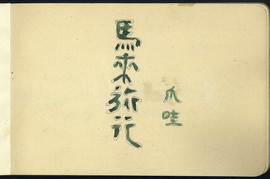 馬來旅行
爪哇